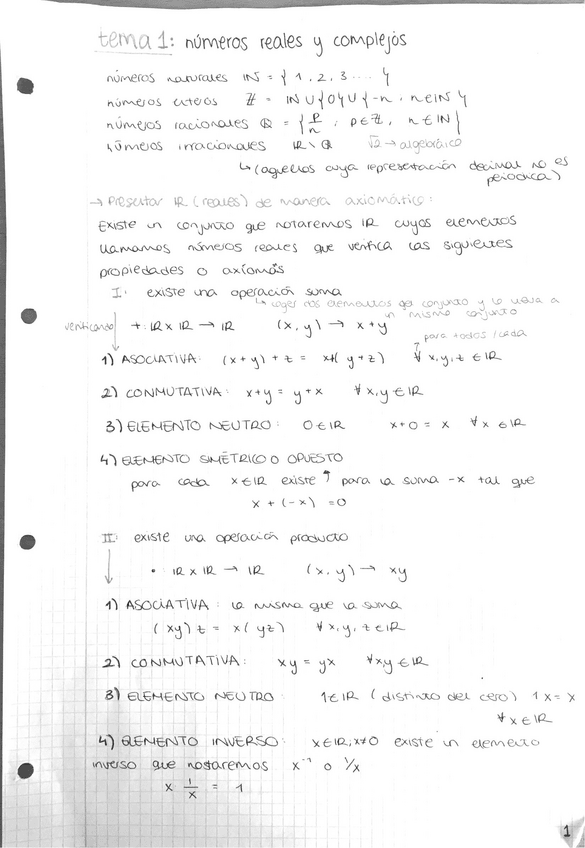 tema 1: números reales y complejos
números naturales IN = { 1, 2, 3 .... }
números enteros ℤ = IN ∪ {0} ∪ {-n, n ∈ IN}
números racionales ℚ = { p/n : p ∈ ℤ, n ∈ IN }
números irracionales IR \ ℚ √2 → algebráico
↳ (aquellos cuya representación decimal no es
periodica)
→ Presentar IR (reales) de manera axiomático:
Existe un conjunto que notaremos IR cuyos elementos
llamamos números reales que verifica las siguientes
propiedades o axiomas
I: existe una operación suma
↳ coger dos elementos del conjunto y lo lleva a
un mismo conjunto
verificando + : IR x IR → IR (x, y) → x + y
para todos / cada
1) ASOCIATIVA: (x + y) + z = x + ( y + z ) ∀ x, y, z ∈ IR
2) CONMUTATIVA: x + y = y + x ∀ x, y ∈ IR
3) ELEMENTO NEUTRO: 0 ∈ IR x + 0 = x ∀ x ∈ IR
4) ELEMENTO SIMÉTRICO O OPUESTO
para cada x ∈ IR existe ↑ para la suma -x tal que
x + (-x) = 0
II: existe una operación producto
• IR x IR → IR (x, y) → xy
1) ASOCIATIVA: la misma que la suma
( xy ) z = x ( yz ) ∀ x, y, z ∈ IR
2) CONMUTATIVA: xy = yx ∀ xy ∈ IR
3) ELEMENTO NEUTRO: 1 ∈ IR ( distinto del cero) 1 x = x
∀ x ∈ IR
4) ELEMENTO INVERSO: x ∈ IR; x ≠ 0 existe un elemento
inverso que notaremos x⁻¹ o 1/x
x 1/x = 1
1